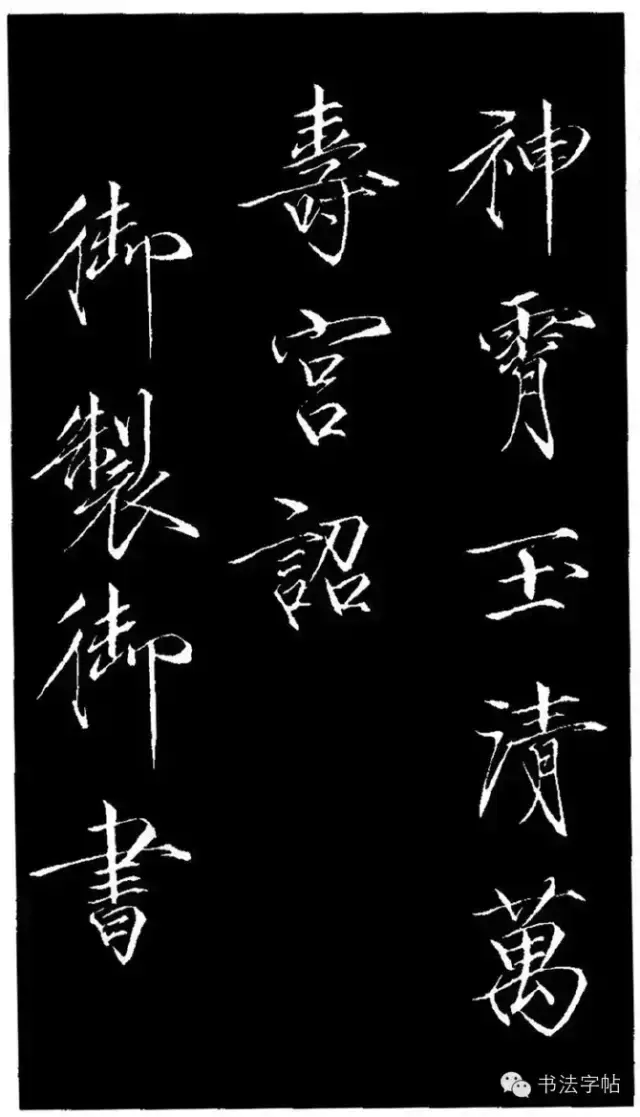 神霄玉清萬
壽宮詔
御製御書
书法字帖